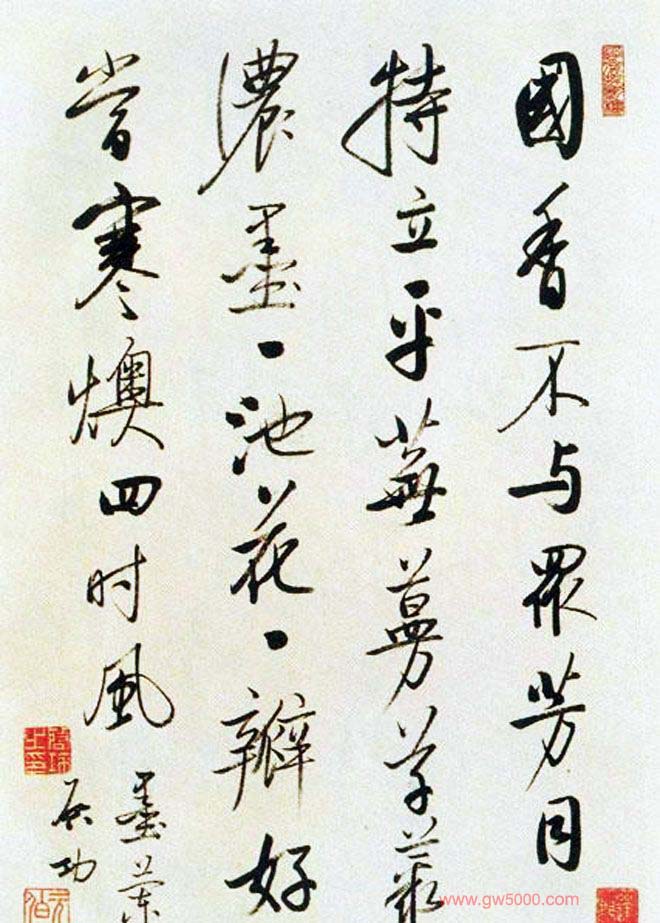 國香不与眾芳同
特立平蕪蔓草叢
濃墨一池花一瓣好
當寒燠四时風
墨蘭
启功
www.gw5000.com